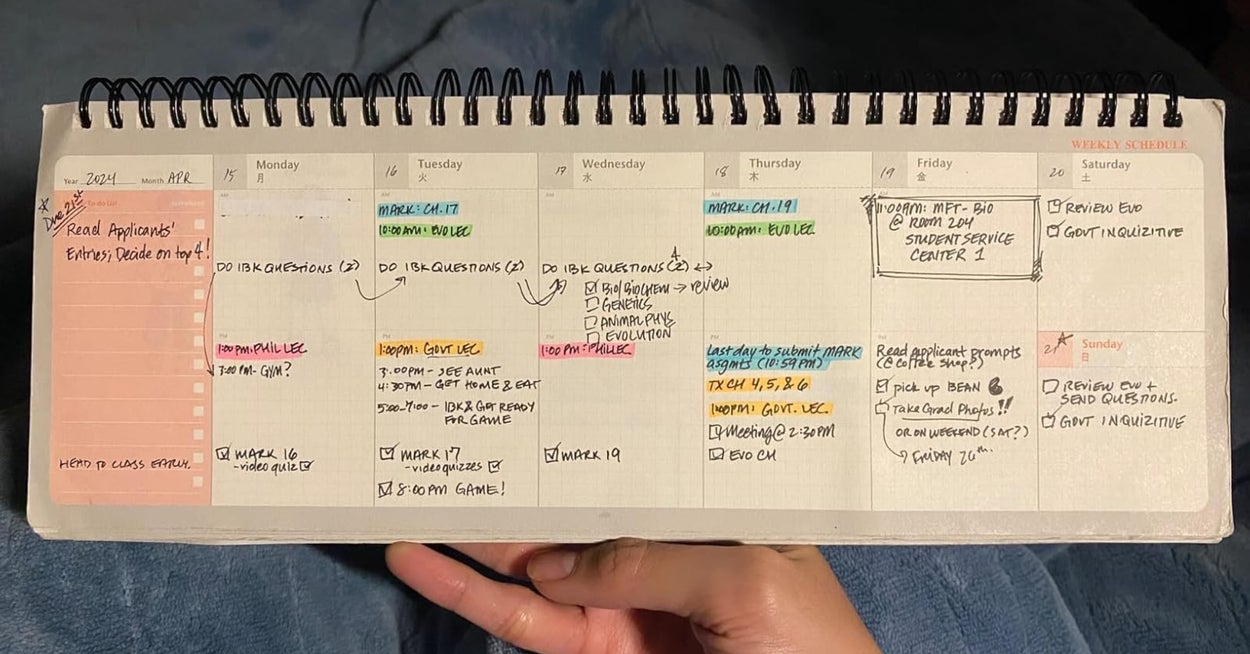 WEEKLY SCHEDULE
Year 2024 Month APR
Due 21st
To do List
Read Applicants'
Entries; Decide on top 4!
HEAD TO CLASS EARLY.
15 Monday
月
AM
DO IBK QUESTIONS (2)
PM
1:00PM: PHIL LEC
3:00 PM- GYM?
MARK 16
-video quiz
16 Tuesday
火
AM
MARK: CH. 17
10:00AM: EVO LEC
DO IBK QUESTIONS (2)
PM
1:00PM: GOVT LEC
3:00PM- SEE AUNT
4:30PM- GET HOME & EAT
5:00-7:00- IBK & GET READY
FOR GAME
MARK 17
-video quizzes
8:00PM GAME!
17 Wednesday
水
4
DO IBK QUESTIONS (2)
BIO/BIOCHEM → review
GENETICS
ANIMAL PHYS
EVOLUTION
1:00 PM: PHIL LEC
MARK 19
18 Thursday
木
AM
MARK: CH. 19
10:00pm: EVO LEC
PM
Last day to submit MARK
asgmts (10:59PM)
TX CH 4, 5, & 6
1:00PM: GOVT. LEC.
Meeting @ 2:30PM
EVO CH
19 Friday
金
11:00AM: MFT- BIO
@ ROOM 204
STUDENT SERVICE
CENTER 1
PM
Read Applicant prompts
(@ Coffee Shop?)
pick up BEAN
Take Grad Photos!!
OR ON WEEKEND (SAT?)
FRIDAY 26th.
20 Saturday
土
REVIEW EVO
GOVT INQUIZITIVE
21 Sunday
日
REVIEW EVO +
SEND QUESTIONS.
GOVT INQUIZITIVE